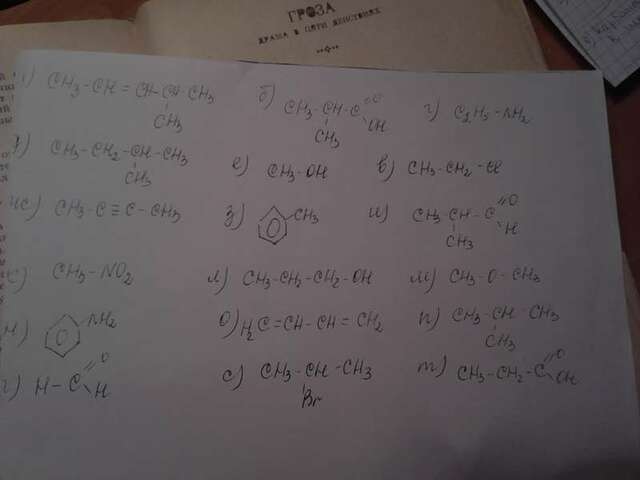 ГРОЗА
ДРАМА В ПЯТИ ДЕЙСТВИЯХ
CH3-CH=CH-CH-CH3
CH3
б) CH3-CH-C=O
OH
CH3
г) C2H5-NH2
CH3-CH2-CH-CH3
CH3
е) CH3-OH
в) CH3-CH2-Cl
ж) CH3-C≡C-CH3
з) CH3
и) CH3-CH-C=O
H
CH3
CH3-NO2
л) CH3-CH2-CH2-OH
м) CH3-O-CH3
н) NH2
о) H2C=CH-CH=CH2
п) CH3-CH CH3
CH3
H-C=O
H
с) CH3-CH-CH3
Br
т) CH3-CH2-C=O
OH